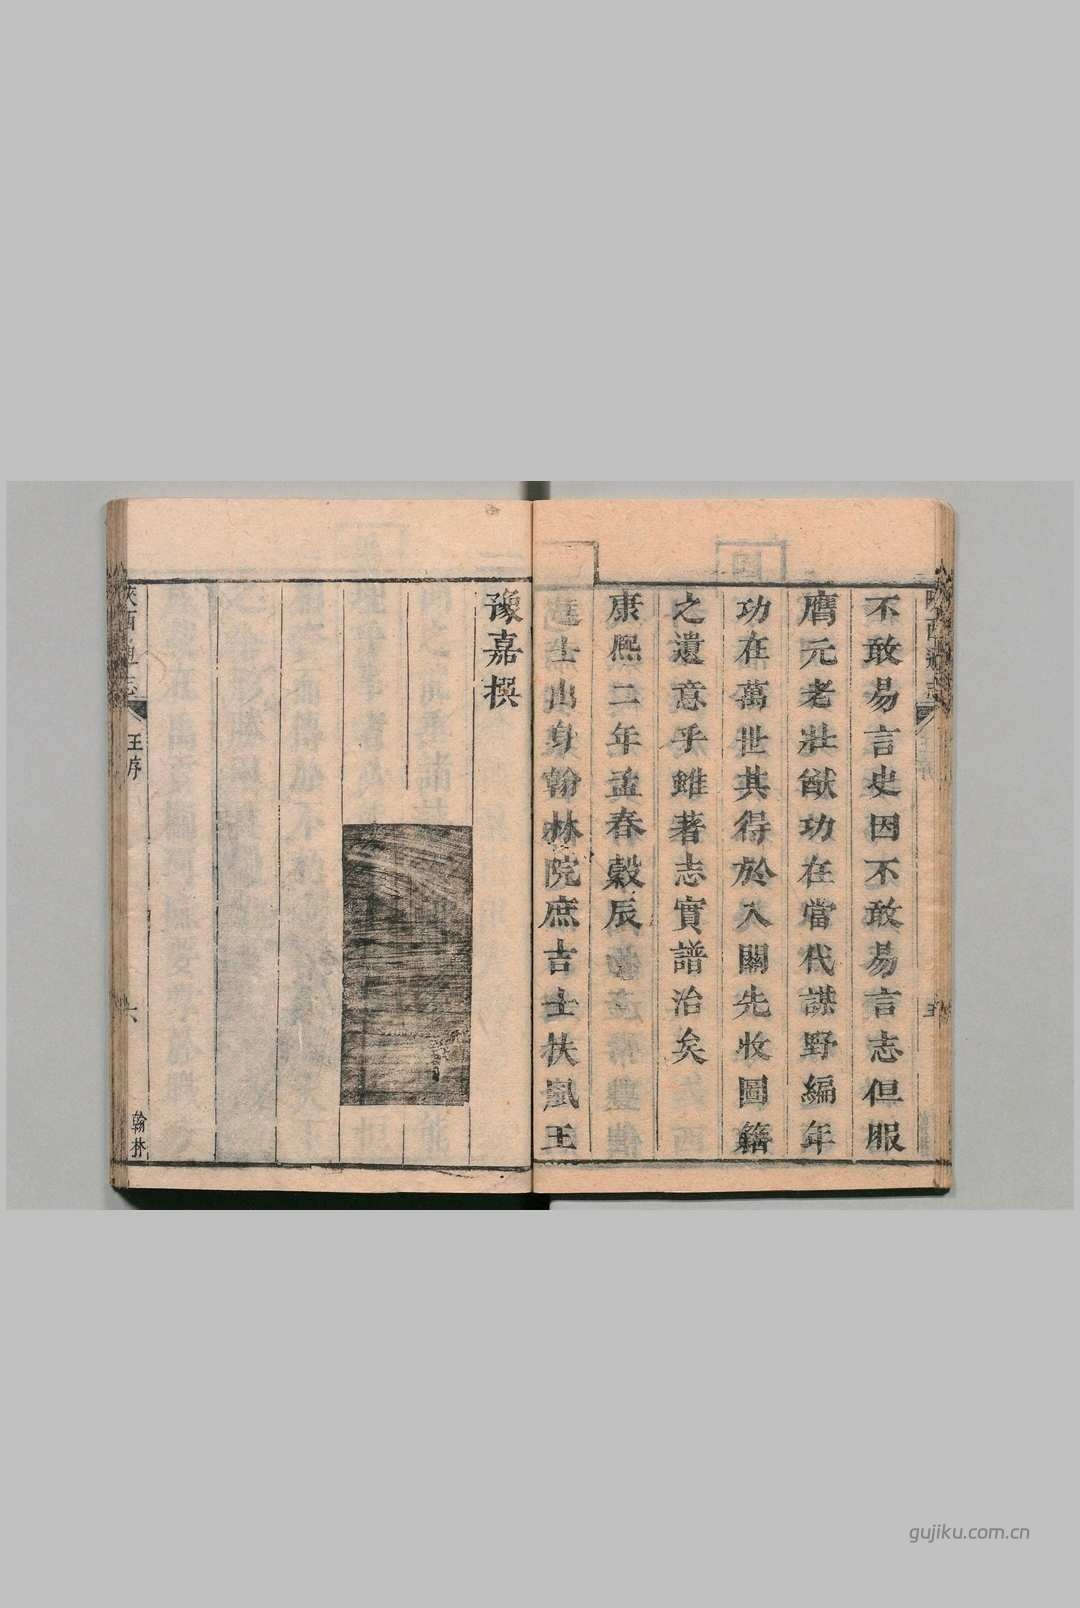 不敢易言史因不敢易言志但服
膺元老壯猷功在當代謀野編年
功在萬世其得於入關先收圖籍
之遺意乎雖著志實譜治矣
康熙二年孟春穀辰
進士出身翰林院庶吉士扶風王
豫嘉撰
陝西通志
王序
六
翰林
gujiku.com.cn